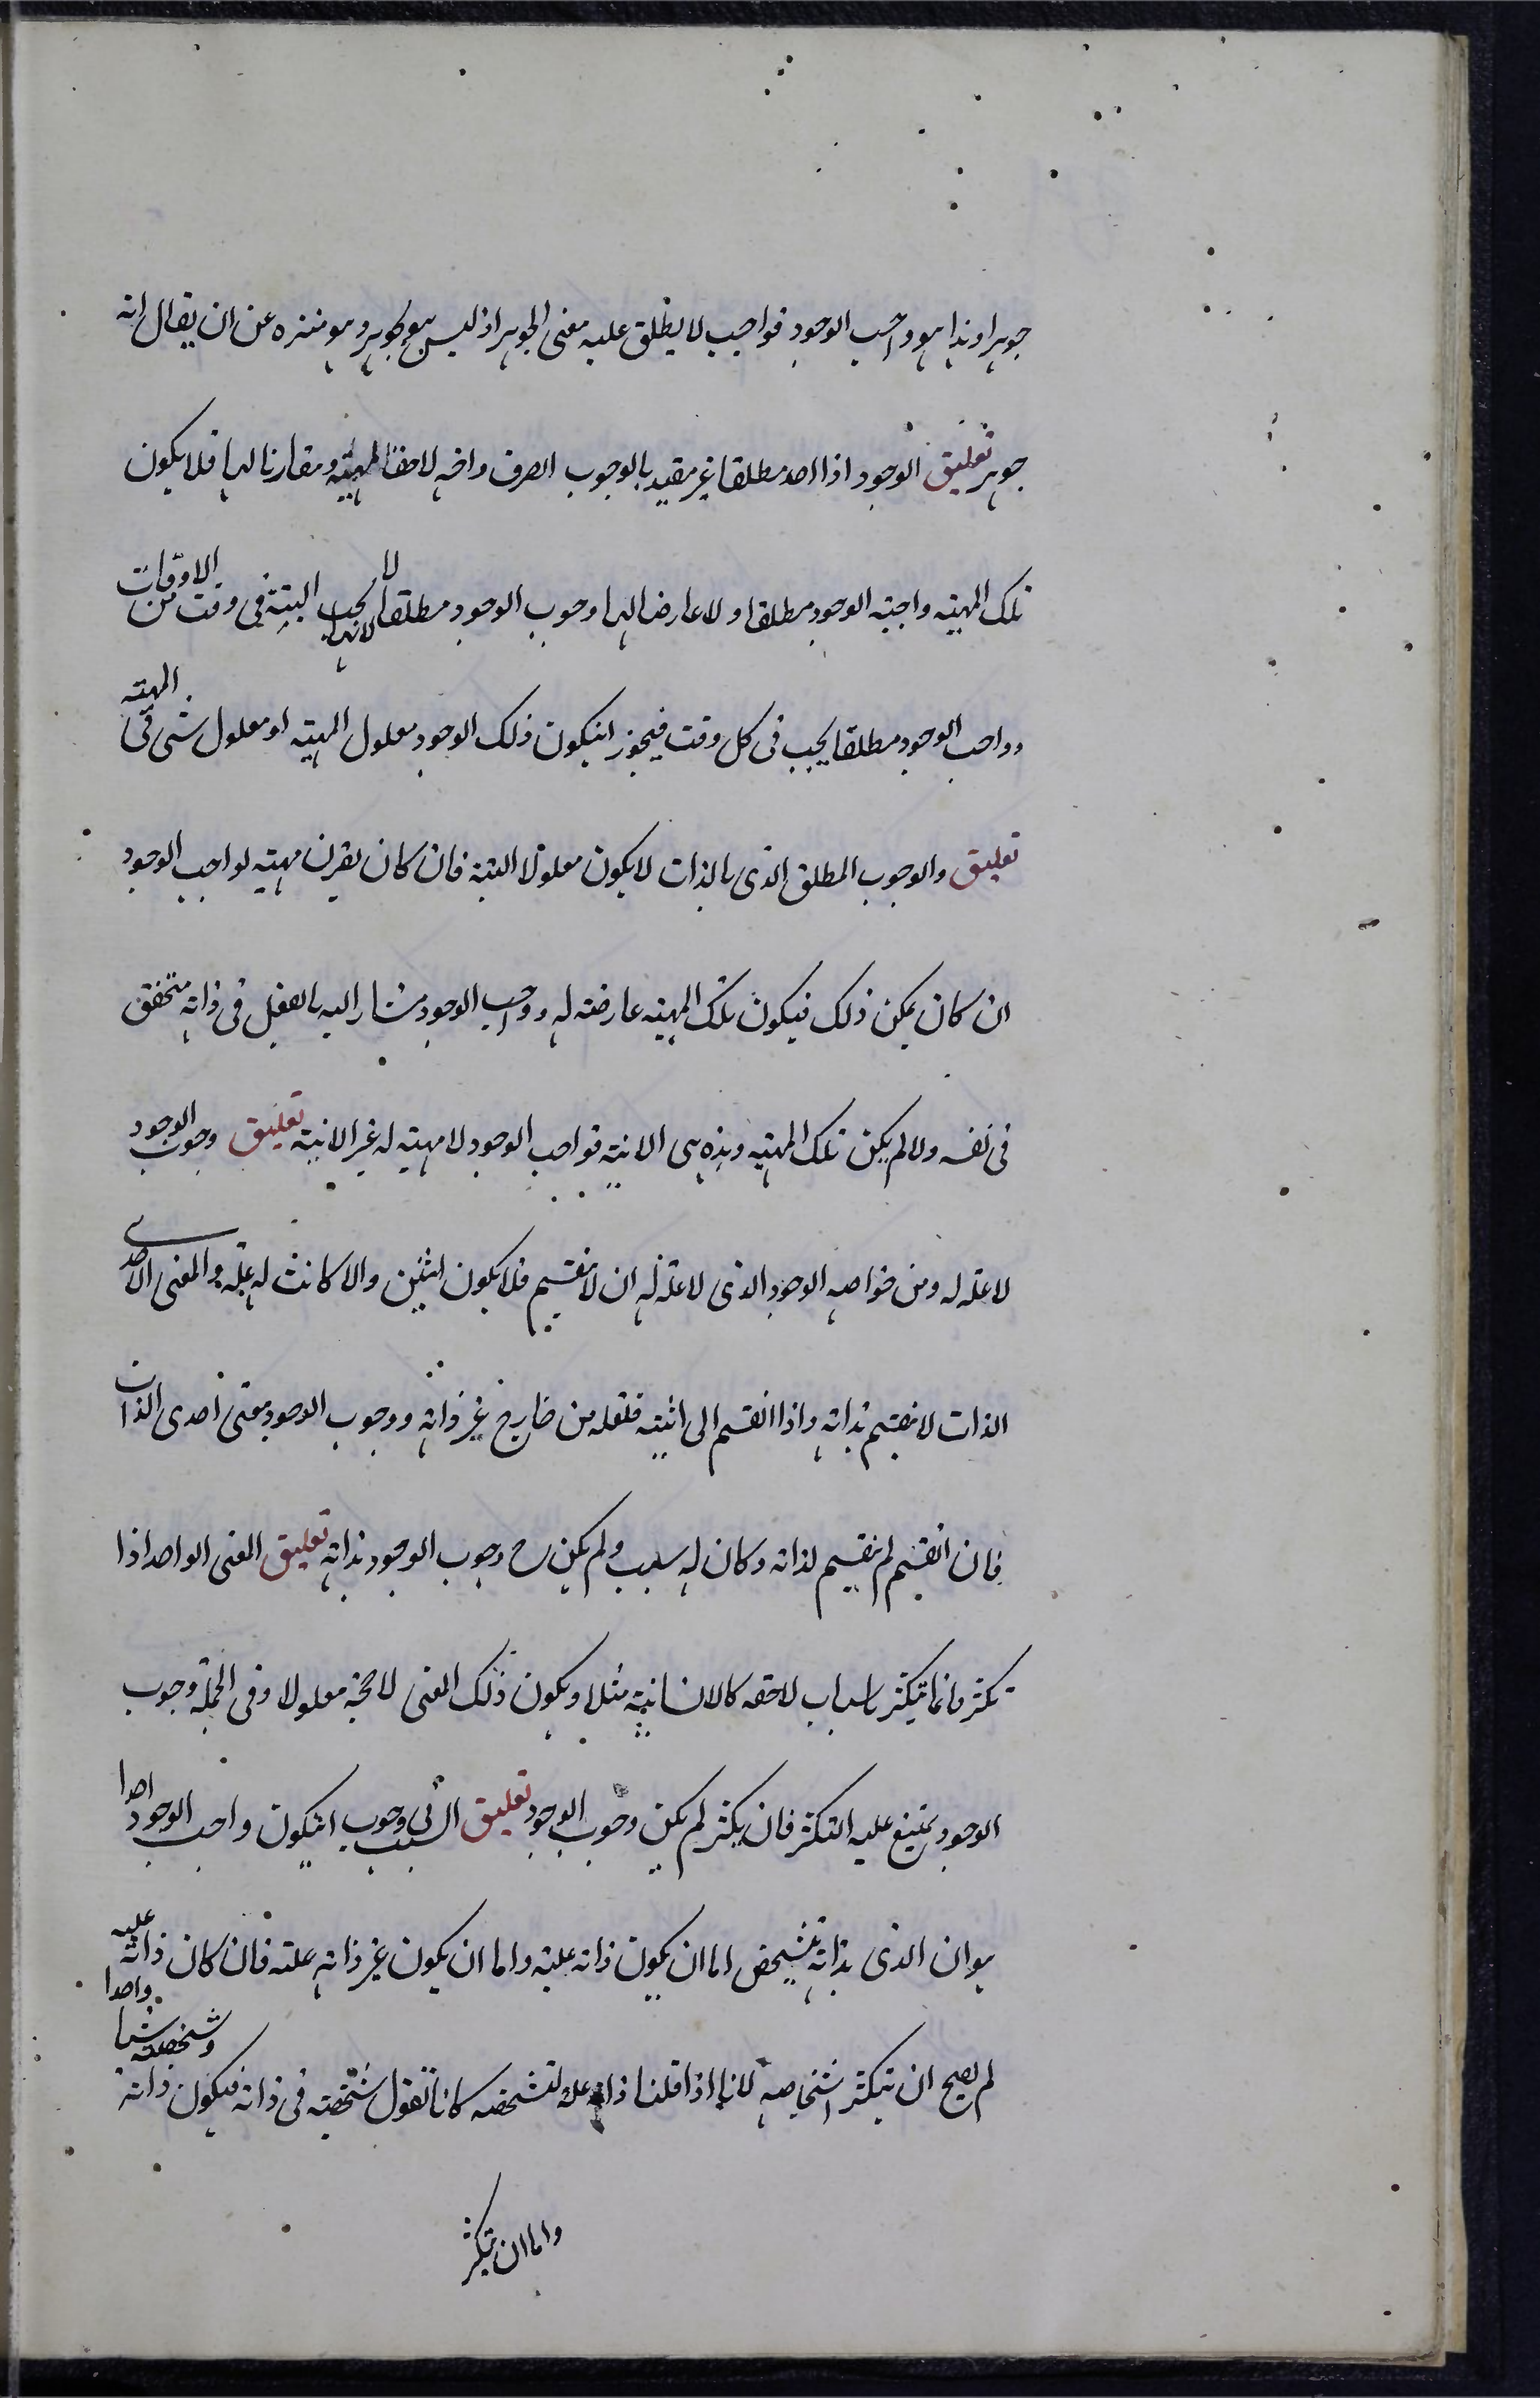 جوهرا وهذا هو واجب الوجود فواجب لا يطلق عليه معنى الجوهر اذ ليس هو بجوهر وهو منزه عن ان يقال انه
جوهر تعليق الوجود اذا اخذ مطلقا غير مقيد بالوجوب الصرف واخذ لاحقا لمهية ومقارنا لها فلا يكون
تلك المهية واجبة الوجود مطلقا ولا عارضا لها وجوب الوجود مطلقا لانها لا يجب البتة في وقت من الاوقات
وواجب الوجود مطلقا يجب في كل وقت فيجوز انيكون ذلك الوجود معلول المهية او معلول شى فى المهية
تعليق والوجوب المطلق الذى بالذات لا يكون معلولا البتة فان كان يقرن مهية لواجب الوجود
ان كان يمكن ذلك فيكون تلك المهية عارضة له وواجب الوجود مشار اليه بالعقل فى ذاته متحقق
فى نفسه ولا لم يكن تلك المهية وهذه هى الانية فواجب الوجود لا مهية له غير الانية تعليق وجوب الوجود
لا علة له ومن خواصه الوجود الذى لا علة له ان لا ينقسم فلا يكون اثنين والا كانت له علة والمعنى الاحدى
الذات لا ينقسم بذاته واذا انقسم الى اثنينه فلعله من خارج غير ذاته ووجوب الوجود معنى احدى الذات
فان انقسم لم ينقسم لذاته وكان له سبب ولم يكن ح وجوب الوجود بذاته تعليق المعنى الواحد اذا
تكثر فانما يتكثر باسباب لاحقة كالانسانية مثلا ويكون ذلك المعنى لا محة معلولا وفى الجملة وجوب
الوجود يمتنع عليه التكثر فان يكثر لم يكن وجوب الوجود تعليق السبب فى وجوب انيكون واجب الوجود احدا
هو ان الذى بذاته يتشخص اما ان يكون ذاته علية واما ان يكون غير ذاته علته فان كان ذاته عليه
لم يصح ان يتكثر اشخاصه لانا اذا قلنا ذاته علة لتشخصه كانا نقول شخصيته فى ذاته فيكون ذاته وشخصيته شيا واحدا
واما ان يتكثر